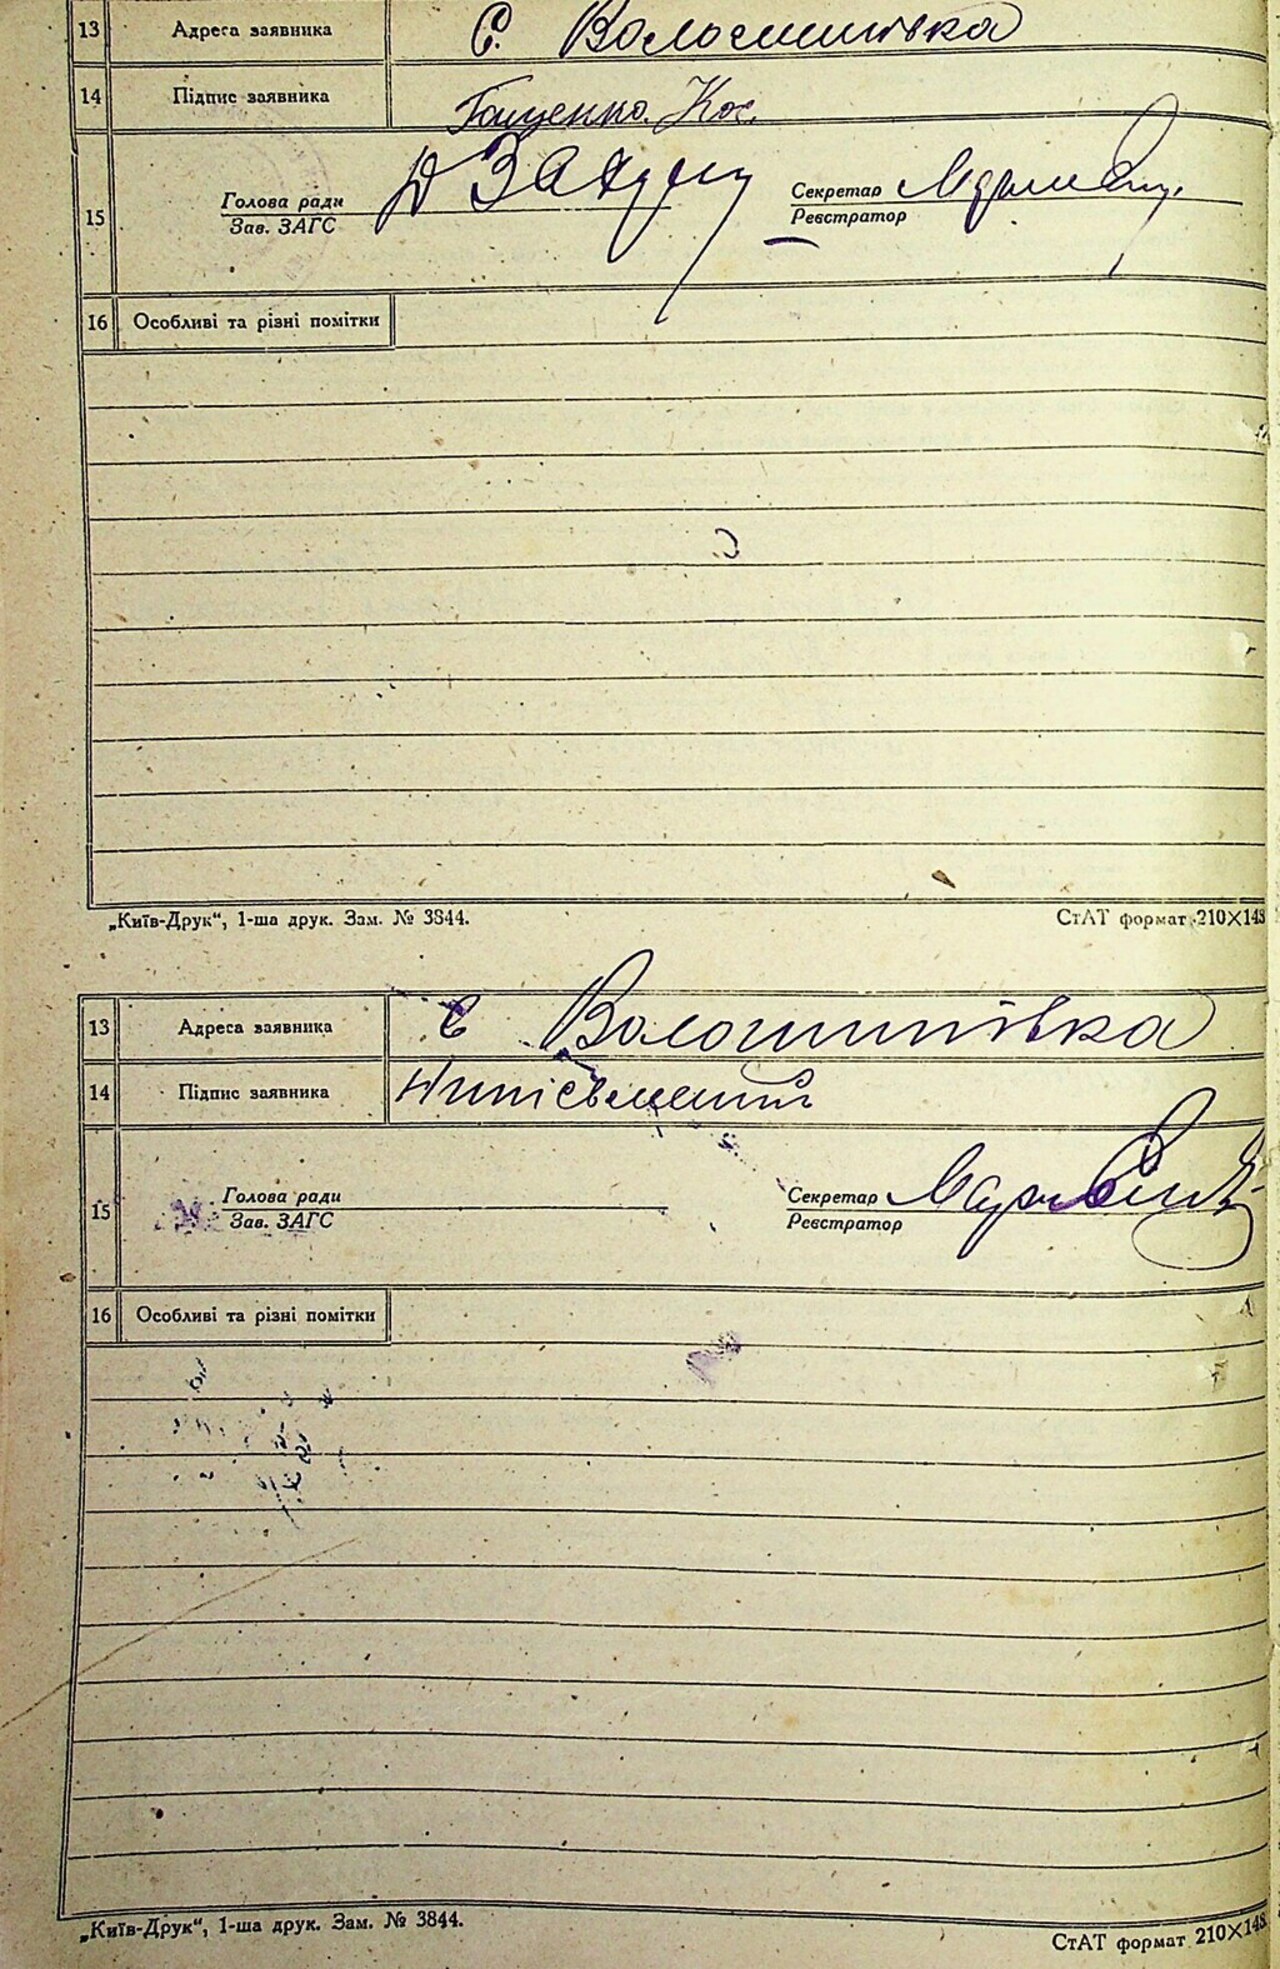 13 Адреса заявника С. Волошинівка
14 Підпис заявника Гащенко. Кос.
15 Голова ради Секретар
Зав. ЗАГС Реєстратор
16 Особливі та різні помітки
„Київ-Друк“, 1-ша друк. Зам. № 3844. СтАТ формат 210×148
13 Адреса заявника С Волошинівка
14 Підпис заявника
15 Голова ради Секретар
Зав. ЗАГС Реєстратор
16 Особливі та різні помітки
„Київ-Друк“, 1-ша друк. Зам. № 3844. СтАТ формат 210×148